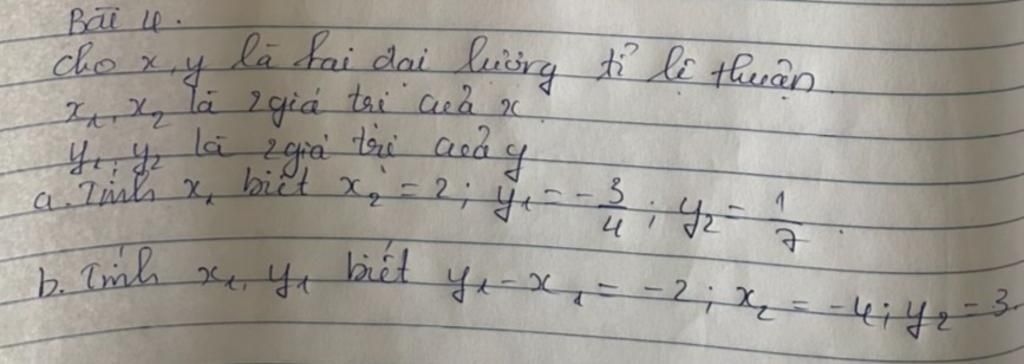 Bài 4.
Cho x, y là hai đại lượng tỉ lệ thuận
x₁, x₂ là 2 giá trị của x
y₁, y₂ là 2 giá trị của y
a. Tính x₁ biết x₂ = 2; y₁ = -3/4; y₂ = 1/7.
b. Tính x₁, y₁ biết y₁ - x₁ = -2; x₂ = -4; y₂ = 3.